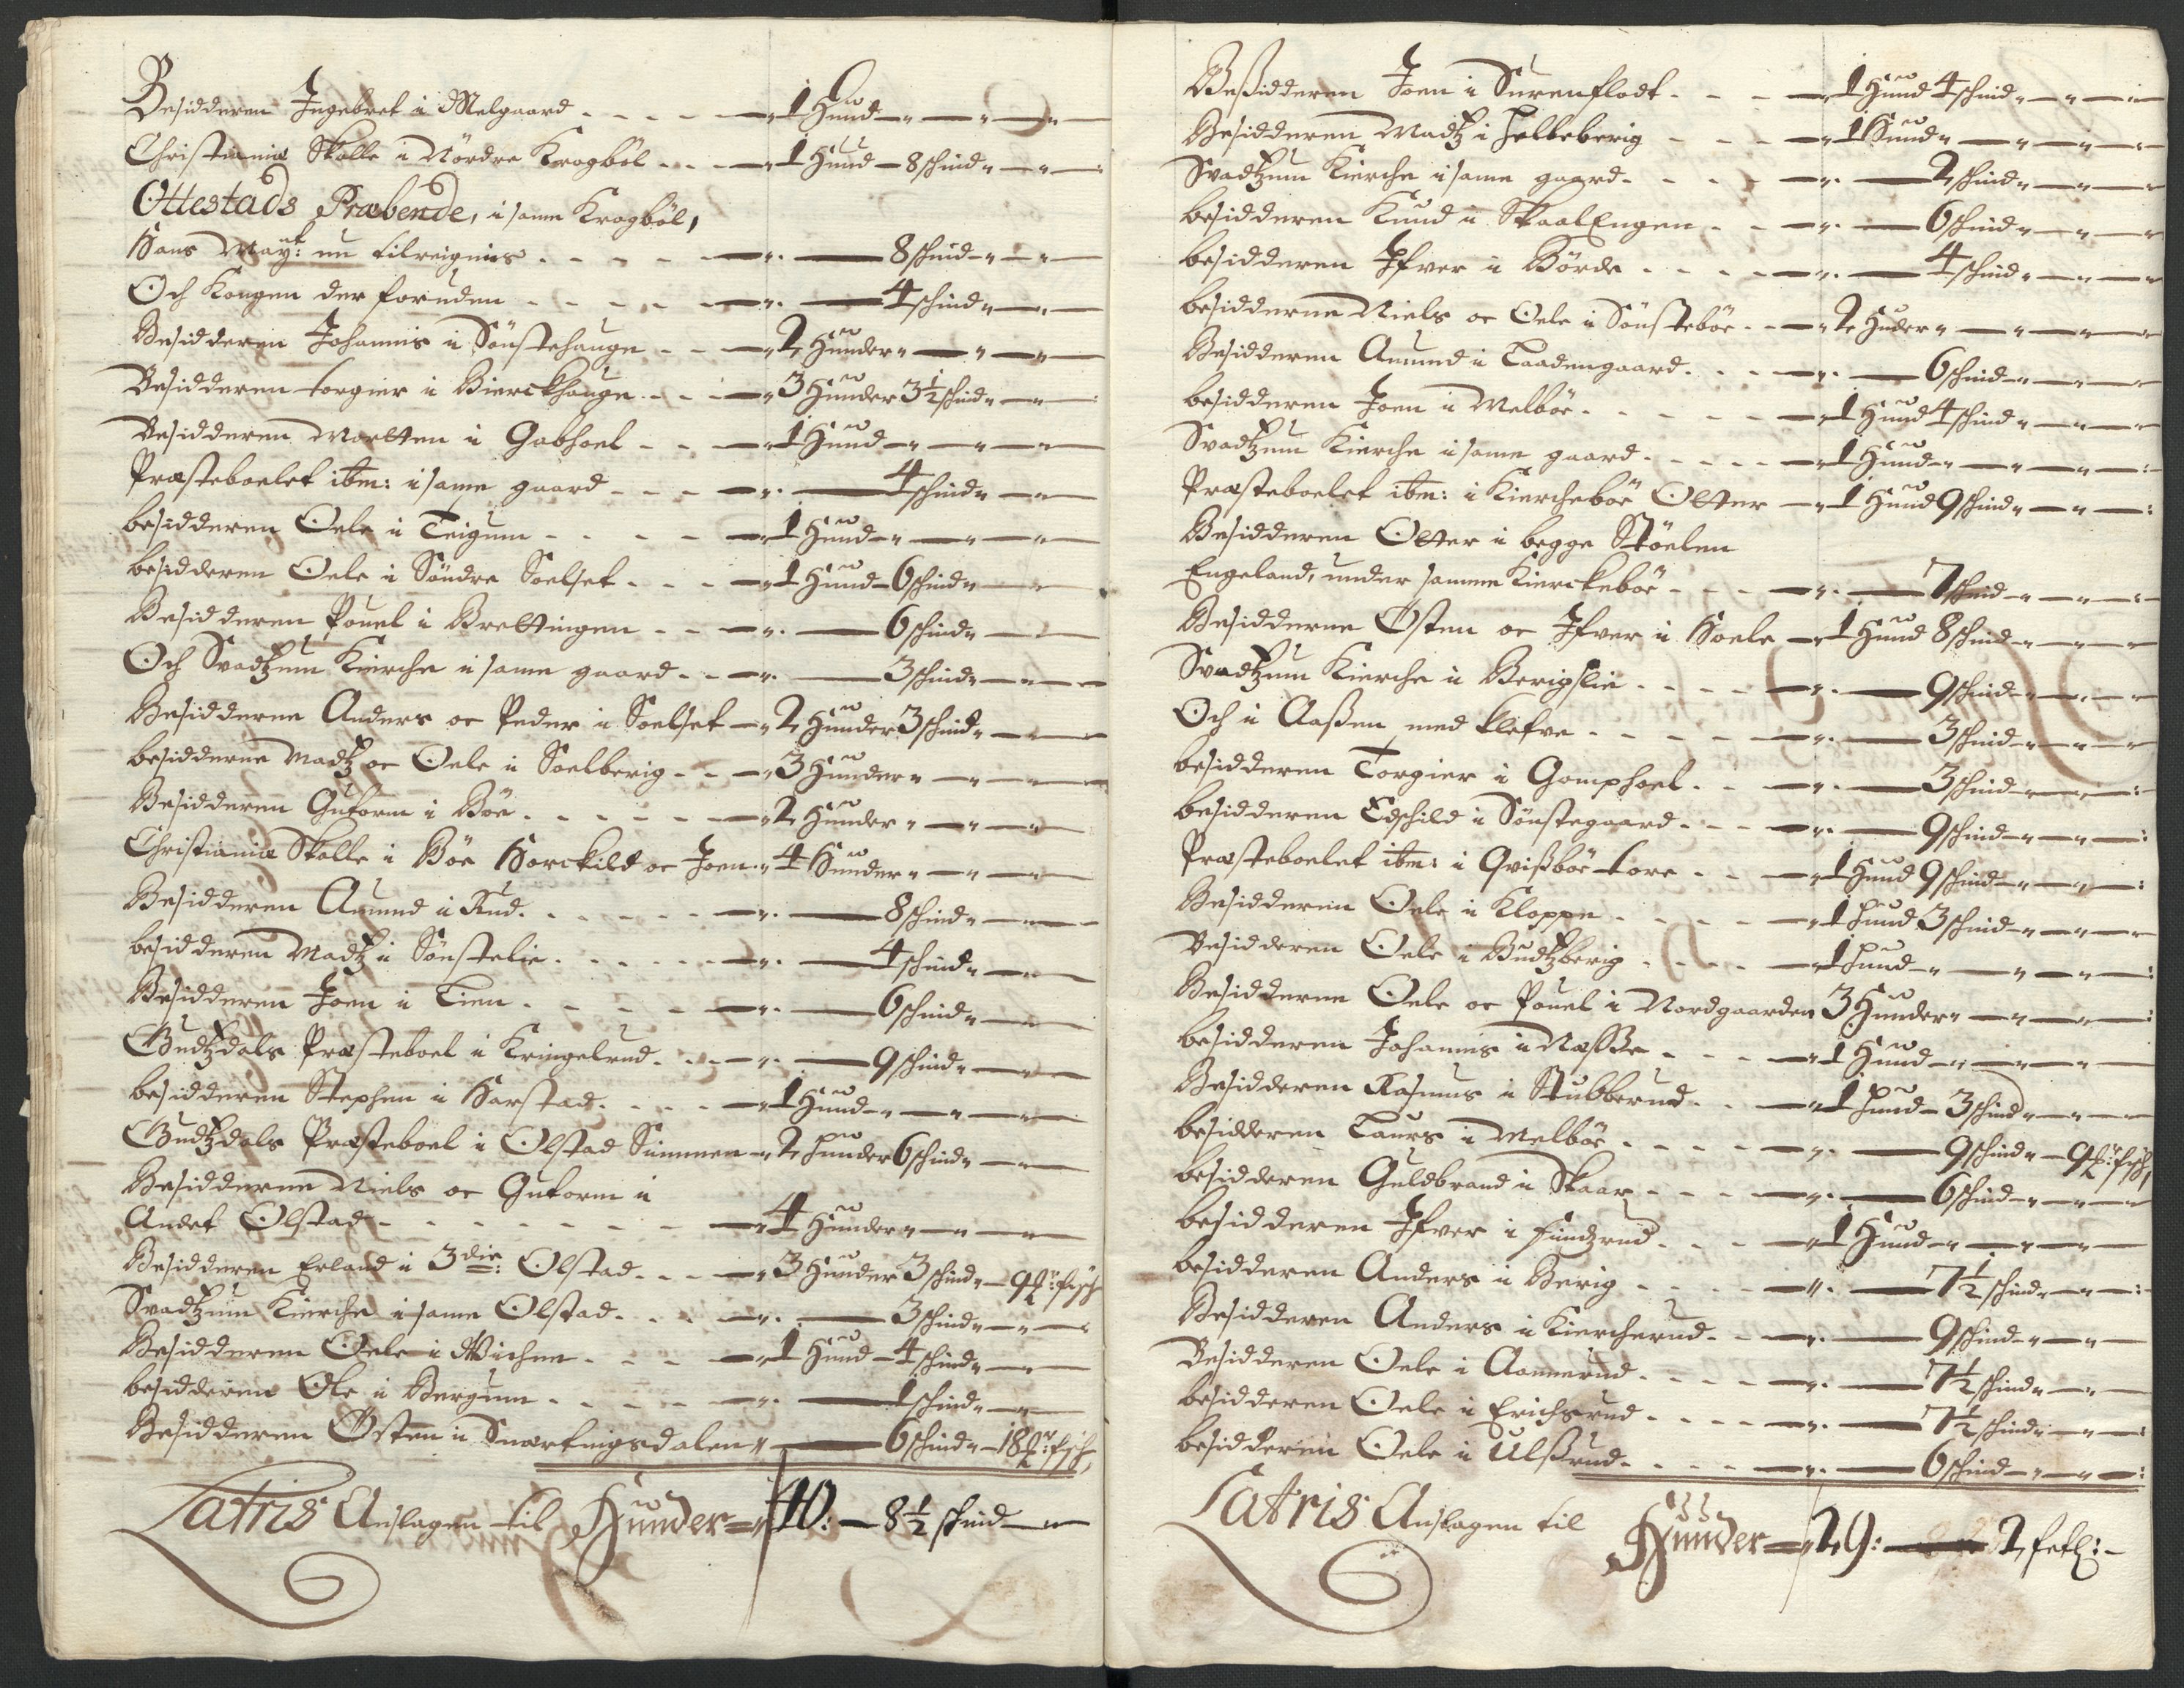 Besidderen Ingebret i Melgaard - - - - 1 Hund
Christiania Skolle i Nördre Krogböl - - - 1 Hund - 8 schind
Ottestads Præbende, i samme Krogböl,
Hans Mayt: nu tilreignis - - - - 8 schind
Och Kongen der foruden - - - - 4 schind
Besidderen Johannis i Sönstehauge - - 2 Hunder
Besidderen Torgier i Bierckhauge - - - 3 Hunder 3½ schind
Besidderen Mortten i Gobhoel - - - 1 Hund
Præsteboelet ibm: i same gaard - - - 4 schind
besidderen Oele i Teigum - - - - 1 Hund
besidderen Oele i Söndre Soelset - - - 1 Hund - 6 schind
Besidderen Pouel i Brettingen - - - 6 schind
Och Svadtzum Kierche i same gaard - - 3 schind
Besidderne Anders oc Peder i Soelset - 2 Hunder 3 schind
besidderne Madtz oc Oele i Soelberig - - 3 Hunder
Besidderen Guttorm i Böe - - - - - 2 Hunder
Christiania Skolle i Böe Horckild oc Joen - 4 Hunder
Besidderen Amund i Rud - - - - - 8 schind
besidderen Madtz i Sönstelie - - - - 4 schind
Besidderen Joen i Lien - - - - - 6 schind
Gudtzdals Præsteboel i Kringelrud - - - 9 schind
besidderen Stephen i Harstad - - - - 1 Hund
Gudtzdals Præsteboel i Olstad Simmen - 2 Hunder 6 schind
Besidderne Niels oc Gutorm i
Andet Olstad - - - - - - - 4 Hunder
Besidderen Erland i 3die: Olstad - - - 3 Hunder 3 schind - 9 fisch
Svadtzum Kierche i same Olstad - - - 3 schind
Besidderen Oele i Wichne - - - 1 Hund - 4 schind
besidderen Ole i Bergum - - - - 1 schind
Besidderen Östen i Snertingsdalen - 6 schind - 18 fisch,
Latris Anslagen til Hunder = 40: - 8½ schind
Beßidderen Joen i Surenflodt - - - 1 Hund 4 schind
Besidderen Madtz i Helleberig - - - 1 Hund
Svadtzum Kierche i same gaard - - - 2 schind
besidderen Knud i SkaalEngen - - 6 schind
besidderen Ifver i Börde - - - - 4 schind
besidderne Niels oc Oele i Sönsteböe - - 2 Huder
Besidderen Amund i Laadengaard - - - 6 schind
besidderen Joen i Melböe - - - - - 1 Hund 4 schind
Svadtzum Kierche i same gaard - - - - 1 Hund
Præsteboelet ibm: i Kiercheböe Otter - 1 Hund 9 schind
Besidderen Otter i begge Stöelen
Engeland, under samme Kierckeböe - - - 7 schind
Besidderne Östen oc Ifver i Hoele - 1 Hund 8 schind
Svadtzum Kierche i Berigslie - - - - 9 schind
Och i Aaßen med Klefve - - - - - 3 schind
besidderen Torgier i Gomphoel - - 3 schind
besidderen Edschild i Sönstegaard - - 9 schind
Præsteboelet ibm: i Qvißböe Tore - - - 1 Hund 9 schind
Besidderen Oele i Kloppe - - - - 1 Hund 3 schind
Besidderen Oele i Budtzberig - - - - 1 Hund
Besidderne Oele oc Pouel i Nordgaarden 3 Hunder
besidderen Johannis i Næsse - - - 1 Hund
Besidderen Rasmus i Stubberud - - - 1 Hund - 3 schind
besidderen Laurs i Melböe - - - - 9 schind - 9 fisch,
besidderen Guldbrand i Skaar - - - 6 schind
besidderen Ifver i Findzrud - - - 1 Hund
besidderen Anders i Berig - - - - 7½ schind
Besidderen Anders i Kiercherud - - 9 schind
Besidderen Oele i Aannerud - - - - 7½ schind
besidderen Oele i Erichsrud - - - - 7½ schind
besidderen Oele i Ulßrud - - - - 6 schind
Latris Anslagen til Hunder = 29: - 2